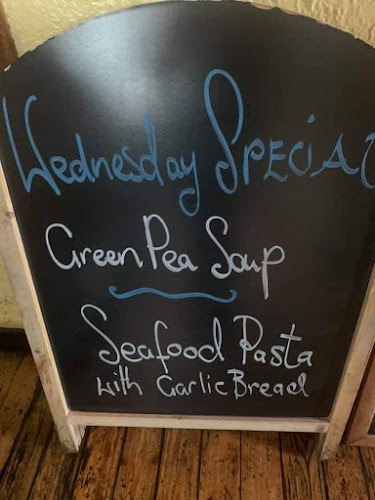 Wednesday SPECiAL
Green Pea Soup
Seafood Pasta
with Garlic Bread